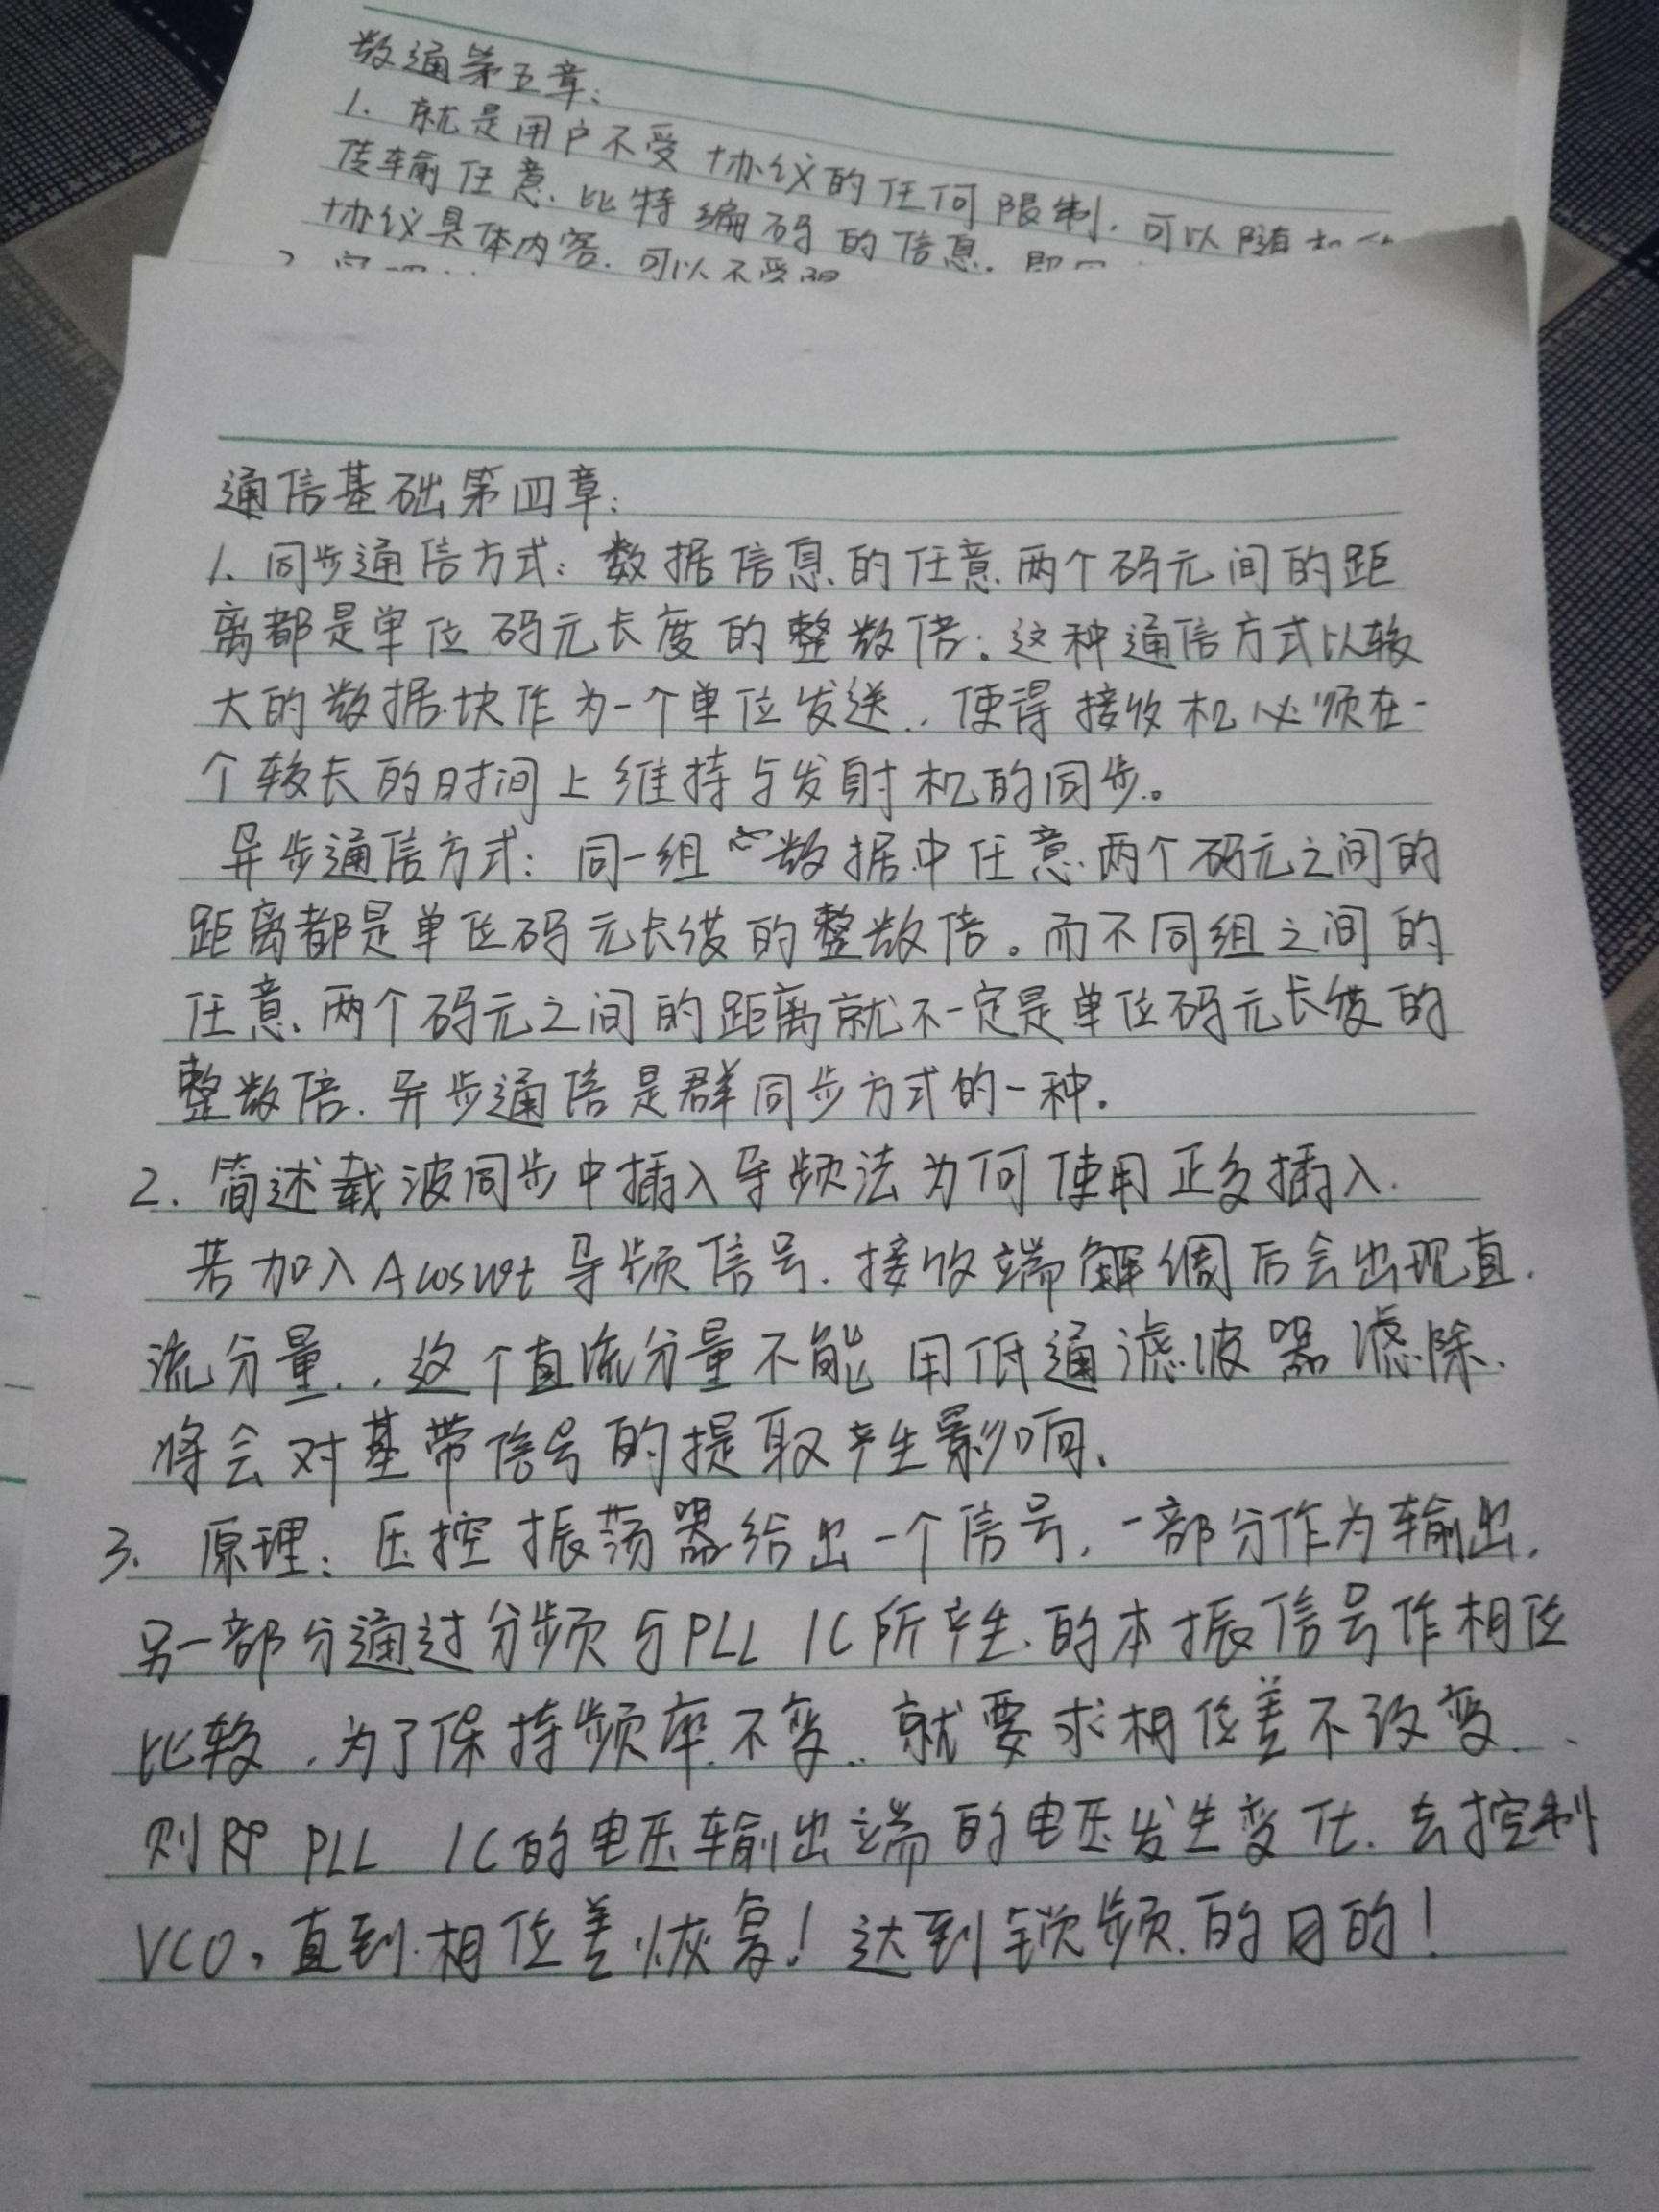 数通第五章：
1. 就是用户不受协议的任何限制，可以随
传输任意、比特编码的信息。即
协议具体内容，可以不受限
通信基础第四章：
1. 同步通信方式：数据信息的任意两个码元间的距
离都是单位码元长度的整数倍。这种通信方式以较
大的数据块作为一个单位发送，使得接收机必须在一
个较长的时间上维持与发射机的同步。
异步通信方式：同一组数据中任意两个码元之间的
距离都是单位码元长度的整数倍。而不同组之间的
任意两个码元之间的距离就不一定是单位码元长度的
整数倍，异步通信是群同步方式的一种。
2. 简述载波同步中插入导频法为何使用正交插入．
若加入Acoswt导频信号，接收端解调后会出现直
流分量，这个直流分量不能用低通滤波器滤除，
将会对基带信号的提取产生影响。
3. 原理：压控振荡器给出一个信号，一部分作为输出，
另一部分通过分频与PLL IC所产生的本振信号作相位
比较，为了保持频率不变，就要求相位差不改变，
则 PLL IC的电压输出端的电压发生变化，去控制
VCO，直到相位差恢复！达到锁频的目的！